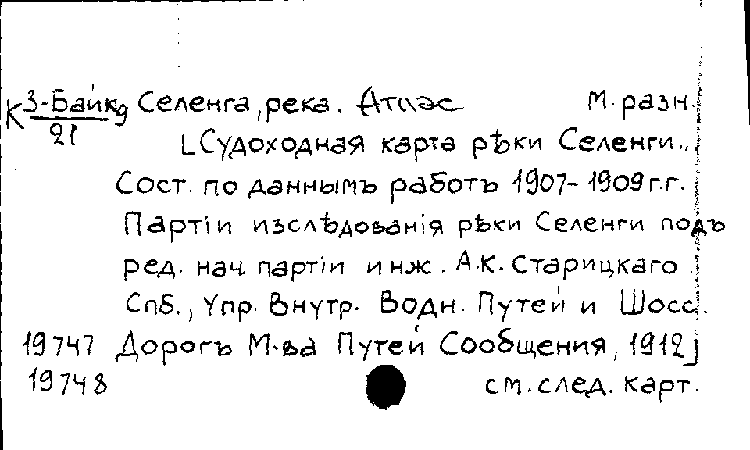 К 3-Байк 9 Селенга, река. Атлас М. разн.
21 [Судоходная карта рѣки Селенги..
Сост. по даннымъ работъ 1907-1909 г.г.
Партіи изслѣдованія рѣки Селенги подъ
ред. нач. партіи инж. А.К. Старицкаго
Спб., Упр. Внутр. Водн. Путей и Шосс.
19747 Дорогъ М-ва Путей Сообщения, 1912]
19748 см. след. карт.